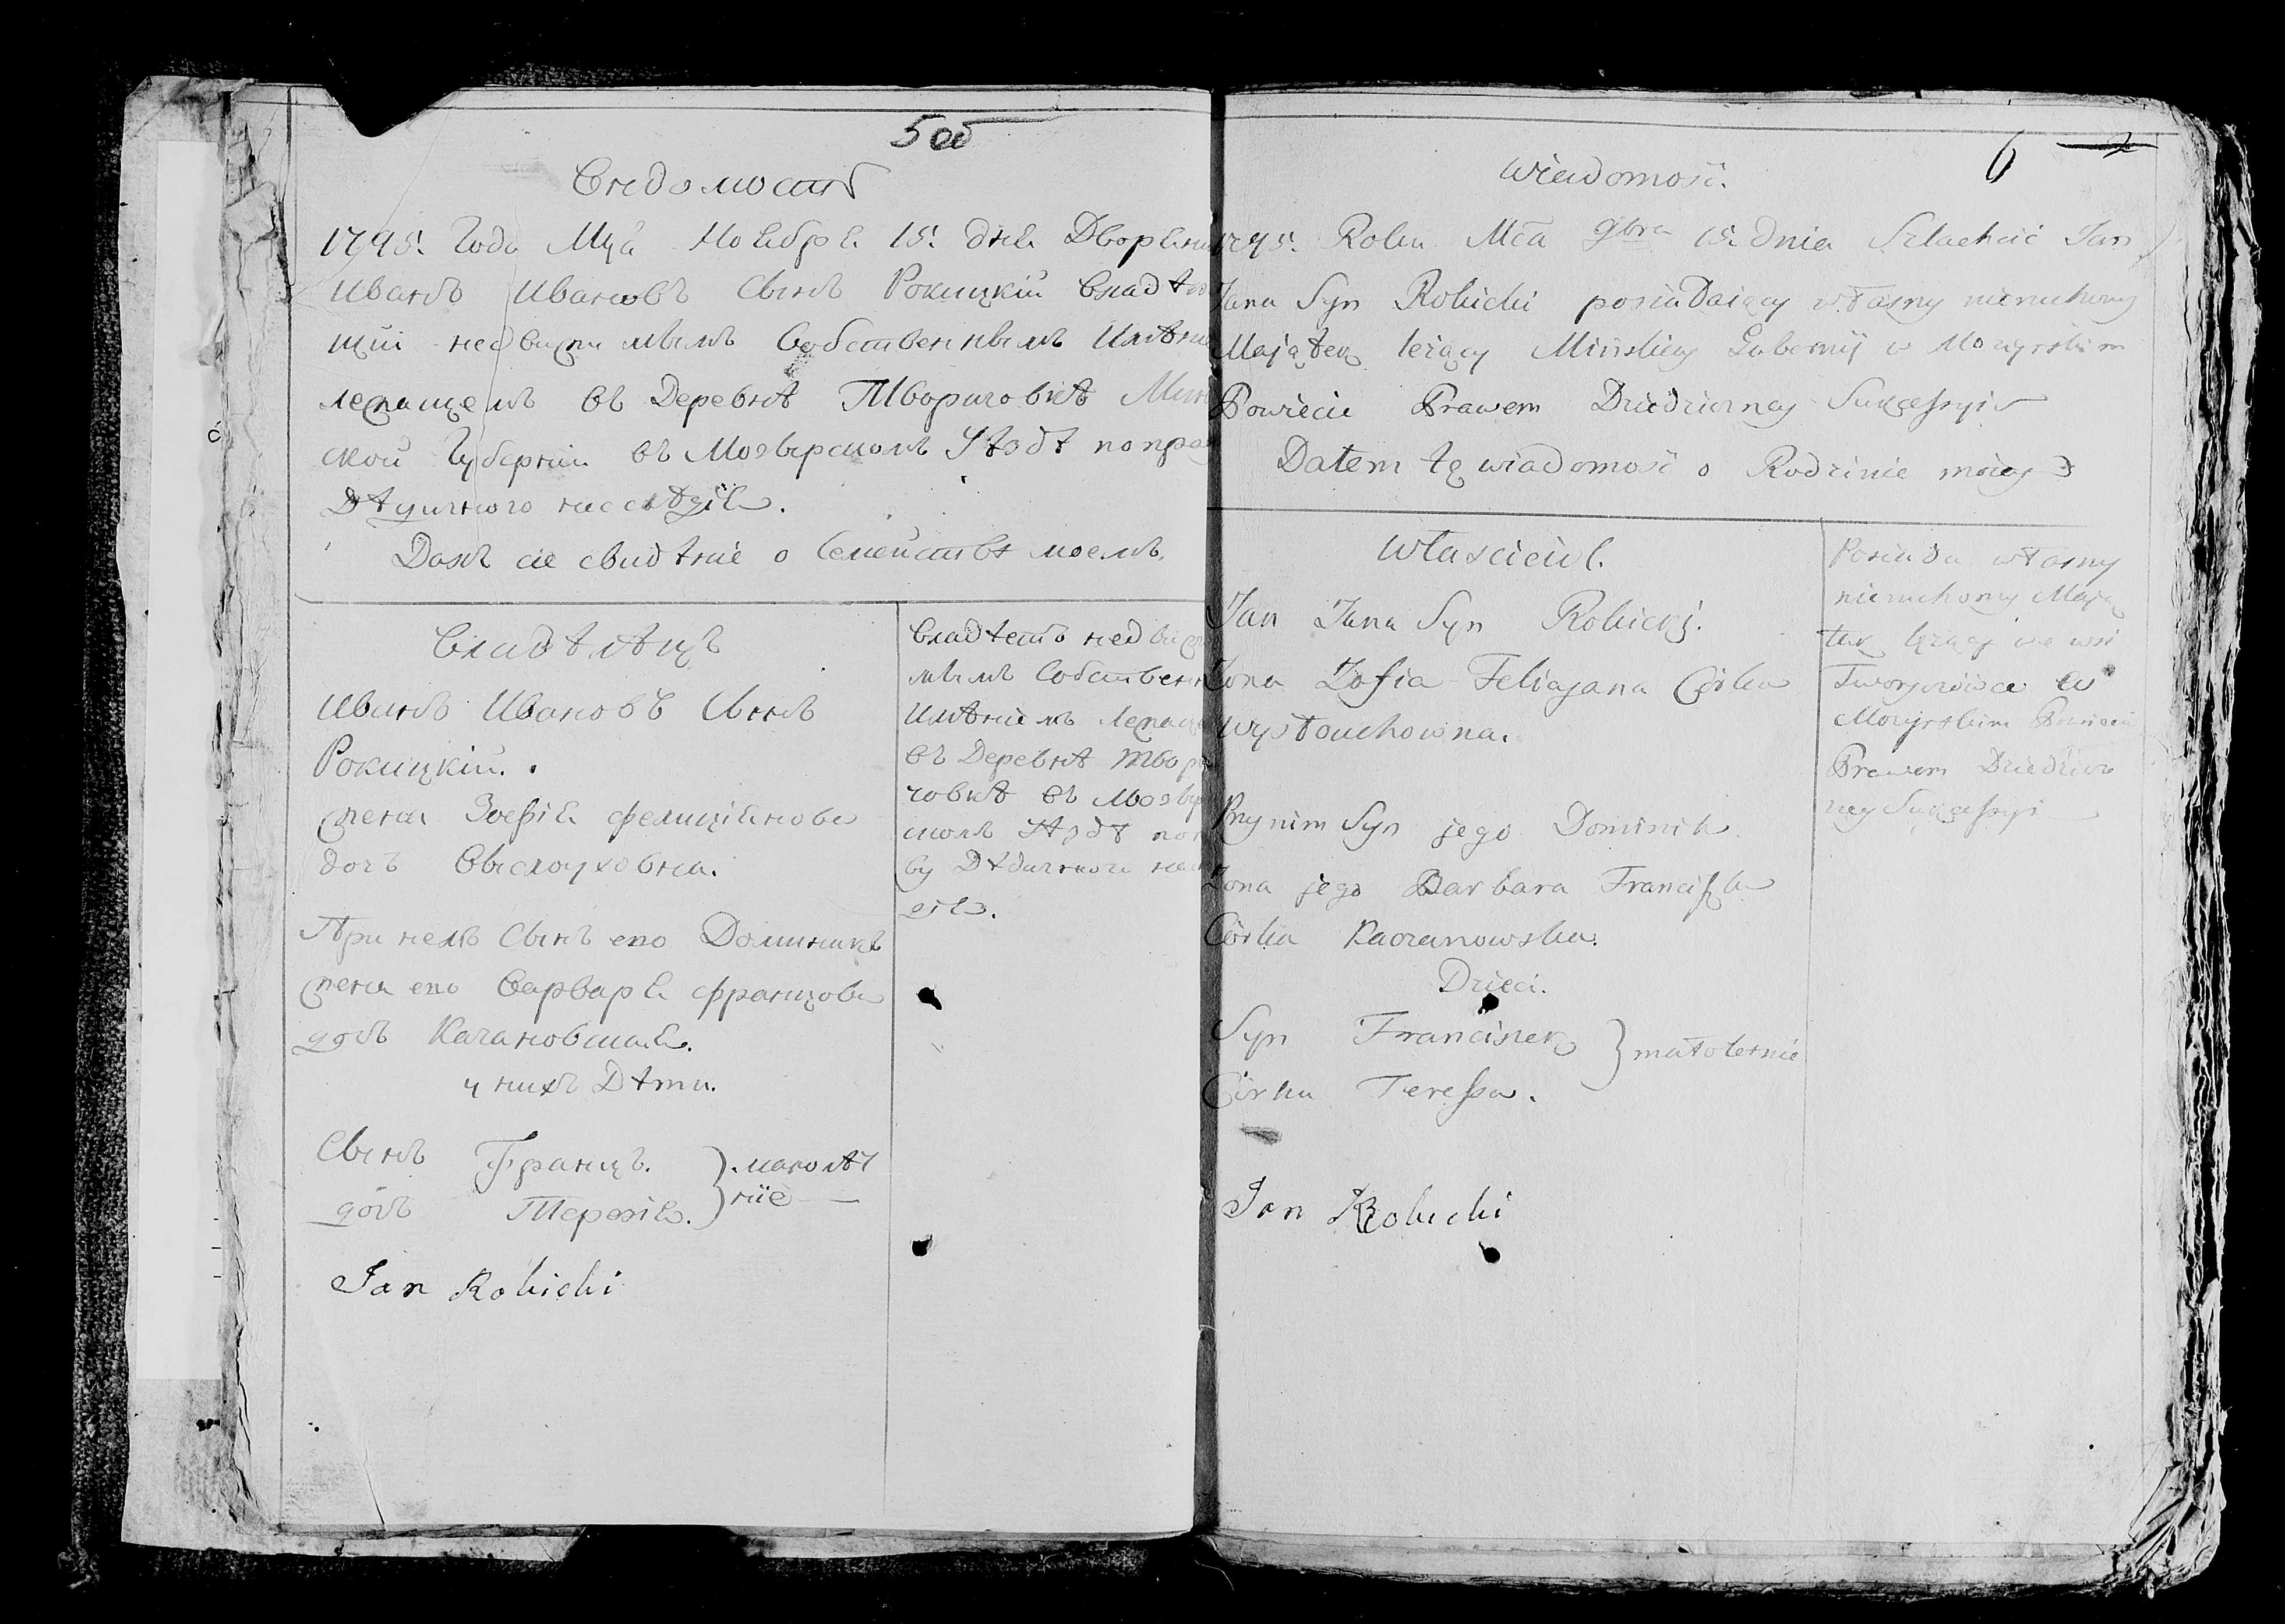 5 об
Вѣдомость
1795. Года Мца Ноября 15. дня Дворянин
Иванъ Ивановъ Сынъ Рокицкій владѣю
щій недвижимымъ Собственнымъ Имѣни
лежащемъ въ Деревнѣ Творичовкѣ Мин
ской Губерніи въ Мозырскомъ Уѣздѣ по пра
Дѣдичного наслѣдія.
Далъ сіе свидѣніе о Семействѣ моемъ.
Владѣлѣцъ
Иванъ Ивановъ Сынъ
Рокицкій.
жена Зофія Фелиціянова
дочъ Выслоуховна.
При немъ Сынъ его Доминикъ
жена его Варвара Францова
дочъ Качановская.
у нихъ Дѣти.
Сынъ Францъ. } малолѣт
дочъ Терезія. } ніе
Jan Rokicki
Владѣетъ недвиж
мымъ Собствен
Имѣніемъ Лежаще
въ Деревнѣ Твори
човкѣ въ Мозыр
скомъ Уѣздѣ по
ву Дѣдичного на
дія.
6 2
Wiadomosć.
1795. Roku Mca 9bra 15. dnia Szlachcic Jan
Jana Syn Rokicki posiadaiący własny nieruchomy
Maiątek leżący Minskiey Gubernij w Mozyrskim
Powiecie Prawem Dziedziczney Sukcessyi
Dałem tę wiadomość o Rodzinie moiey
Właściciel.
Jan Jana Syn Rokicki.
Żona Zofia Felicjana Córka
Wysłouchowna.
Przy nim Syn jego Dominik
Żona jego Barbara Franciszka
Córka Kaczanowska.
Dzieci.
Syn Franciszek } małoletnie
Córka Teressa.
Jan Rokicki
Posiada własny
nieruchomy Maią
tek leżący we wsi
Tworyczowce w
Mozyrskim Powiecie
Prawem Dziedzicz
ney Sukcessyi